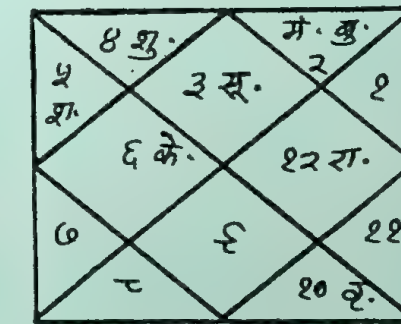 ४ शु.
मं. बु.
२
५
श.
३ सू.
१
६ के.
१२ रा.
७
९
११
८
१० वृ.